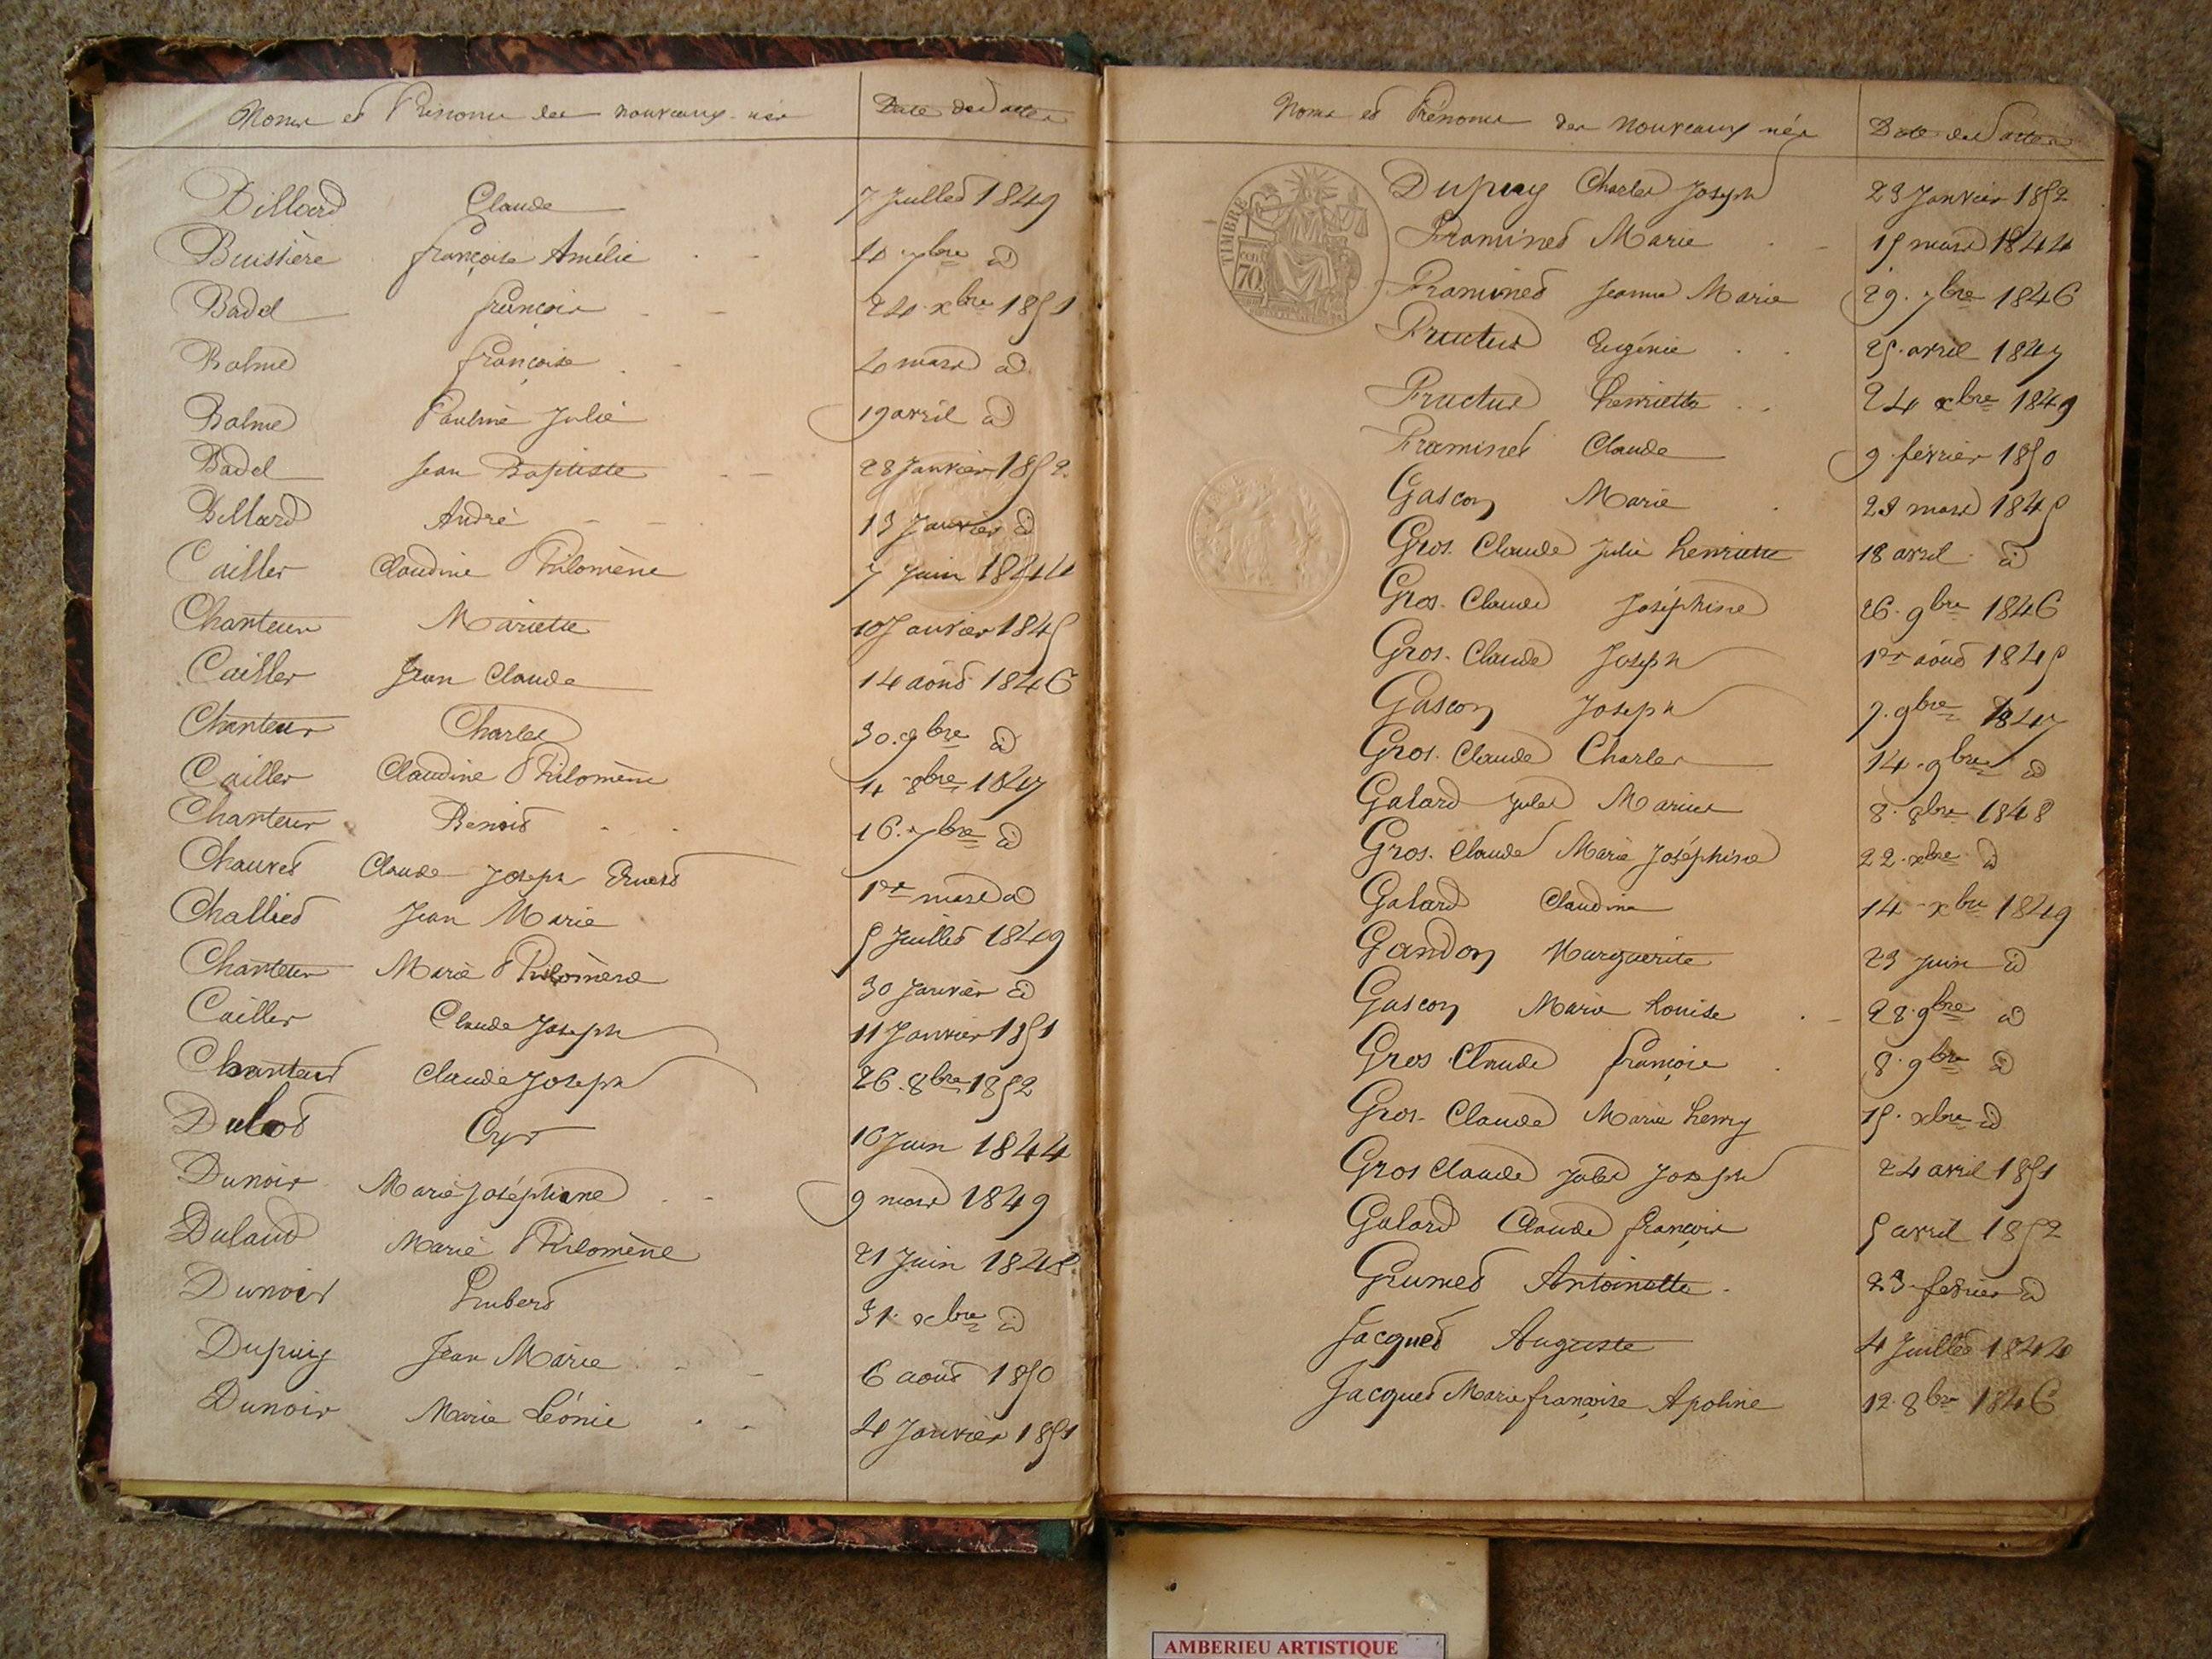 Noms et Prénoms des nouveaux-nés Date des actes
Billard Claude 7 Juillet 1849
Buissière françoise Amélie 4 7bre id
Badel françois 24 xbre 1851
Balme françoise 4 mars id
Balme Pauline Julie 19 avril id
Badel Jean Baptiste 28 Janvier 1852
Billard André 13 Janvier id
Cailler Claudine Philomène 7 Juin 1844
Chanteur Mariette 10 Janvier 1845
Cailler Jean Claude 14 août 1846
Chanteur Charles 30. 9bre id
Cailler Claudine Philomène 4 8bre 1847
Chanteur Benoit 16. 7bre id
Chauvet Claude Joseph Ernest 1er mars id
Challiet Jean Marie 5 Juillet 1849
Chanteur Marie Philomène 30 Janvier id
Cailler Claude Joseph 11 Janvier 1851
Chanteur Claude Joseph 26. 8bre 1852
Cyr 10 Juin 1844
Dunoir Marie Joséphine 9 mars 1849
Marie Philomène 21 Juin 1848
Dunoir Hubert 31. xbre id
Dupuy Jean Marie 6 août 1850
Dunoir Marie Léonie 4 Janvier 1851
Noms et Prénoms des nouveaux nés Date des actes
TIMBRE
70
Dupuy Charles Joseph 23 Janvier 1852
Framinet Marie 15 mars 1844
Framinet Jeanne Marie 29. 7bre 1846
Fructus Eugénie 25. avril 1847
Fructus henriette 24 xbre 1849
Framinet Claude 9 février 1850
Gascon Marie 28 mars 1845
Gros. Claude Julie henriette 18 avril id
Gros. Claude Joséphine 26. 9bre 1846
Gros. Claude Joseph 1er août 1845
Gascon Joseph 7. 9bre 1847
Gros. Claude Charles 14. 9bre id
Galard Jules Marius 8. 8bre 1848
Gros. Claude Marie Joséphine 22. xbre id
Galard Claudine 14 xbre 1849
Gandon Marguerite 23 Juin id
Gascon Marie Louise 28. 9bre id
Gros Claude françois 8. 9bre id
Gros. Claude Marie henry 15. xbre id
Gros Claude Jules Joseph 24 avril 1851
Galard Claude françois 5 avril 1852
Grumet Antoinette 23 février id
Jacquet Auguste 4 Juillet 1844
Jacquet Marie françoise Apoline 12. 8bre 1846
AMBERIEU ARTISTIQUE